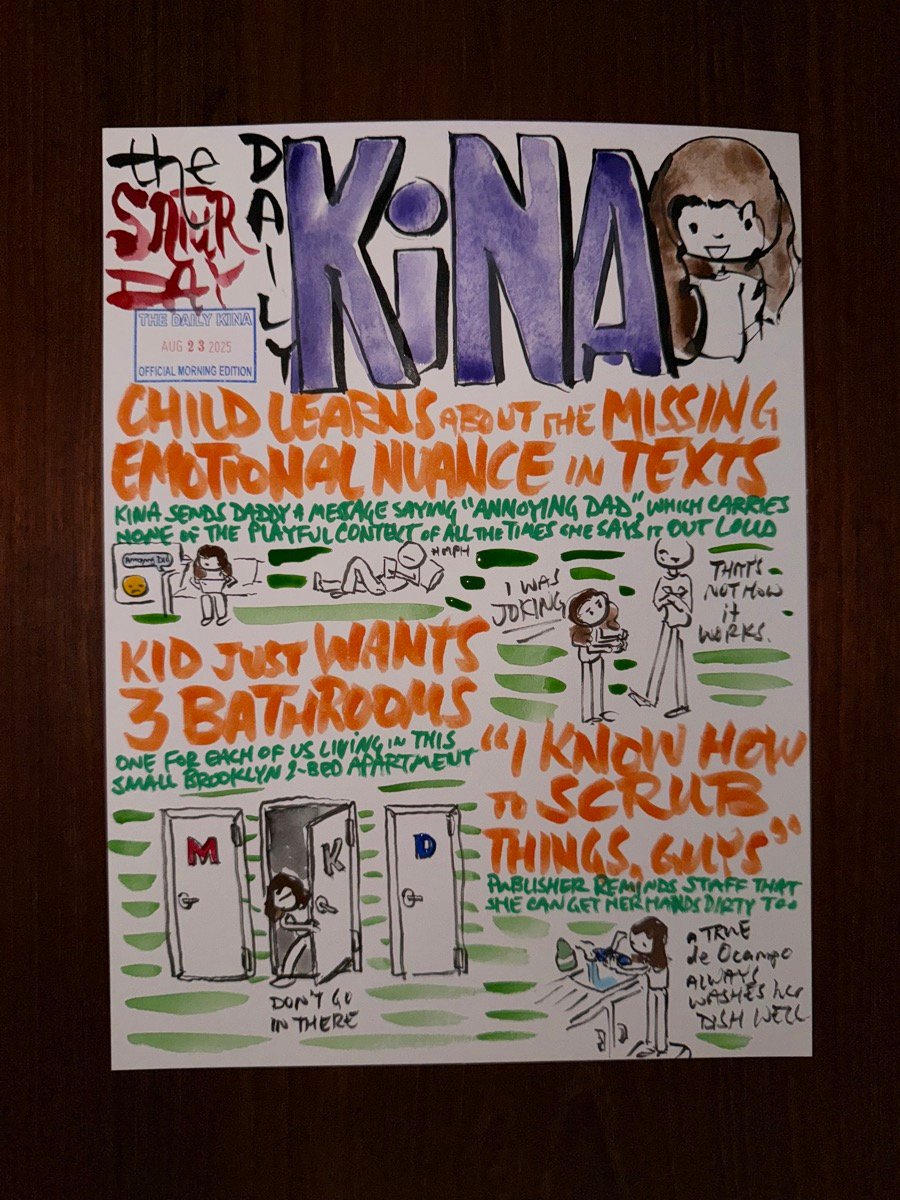 the
SATUR
DAY
DAILY
KiNA
THE DAILY KINA
AUG 23 2025
OFFICIAL MORNING EDITION
CHILD LEARNS ABOUT THE MISSING
EMOTIONAL NUANCE IN TEXTS
KINA SENDS DADDY A MESSAGE SAYING "ANNOYING DAD", WHICH CARRIES
NONE OF THE PLAYFUL CONTEXT OF ALL THE TIMES SHE SAYS IT OUT LOUD
Annoying Dad
HMPH
I WAS
JOKING
THAT'S
NOT HOW
it
WORKS.
KID JUST WANTS
3 BATHROOMS
ONE FOR EACH OF US LIVING IN THIS
SMALL BROOKLYN 2-BED APARTMENT
M
K
D
DON'T GO
IN THERE
"I KNOW HOW
TO SCRUB
THINGS, GUYS"
PUBLISHER REMINDS STAFF THAT
SHE CAN GET HER HANDS DIRTY TOO
a TRUE
de Ocampo
ALWAYS
WASHES her
DISH WELL